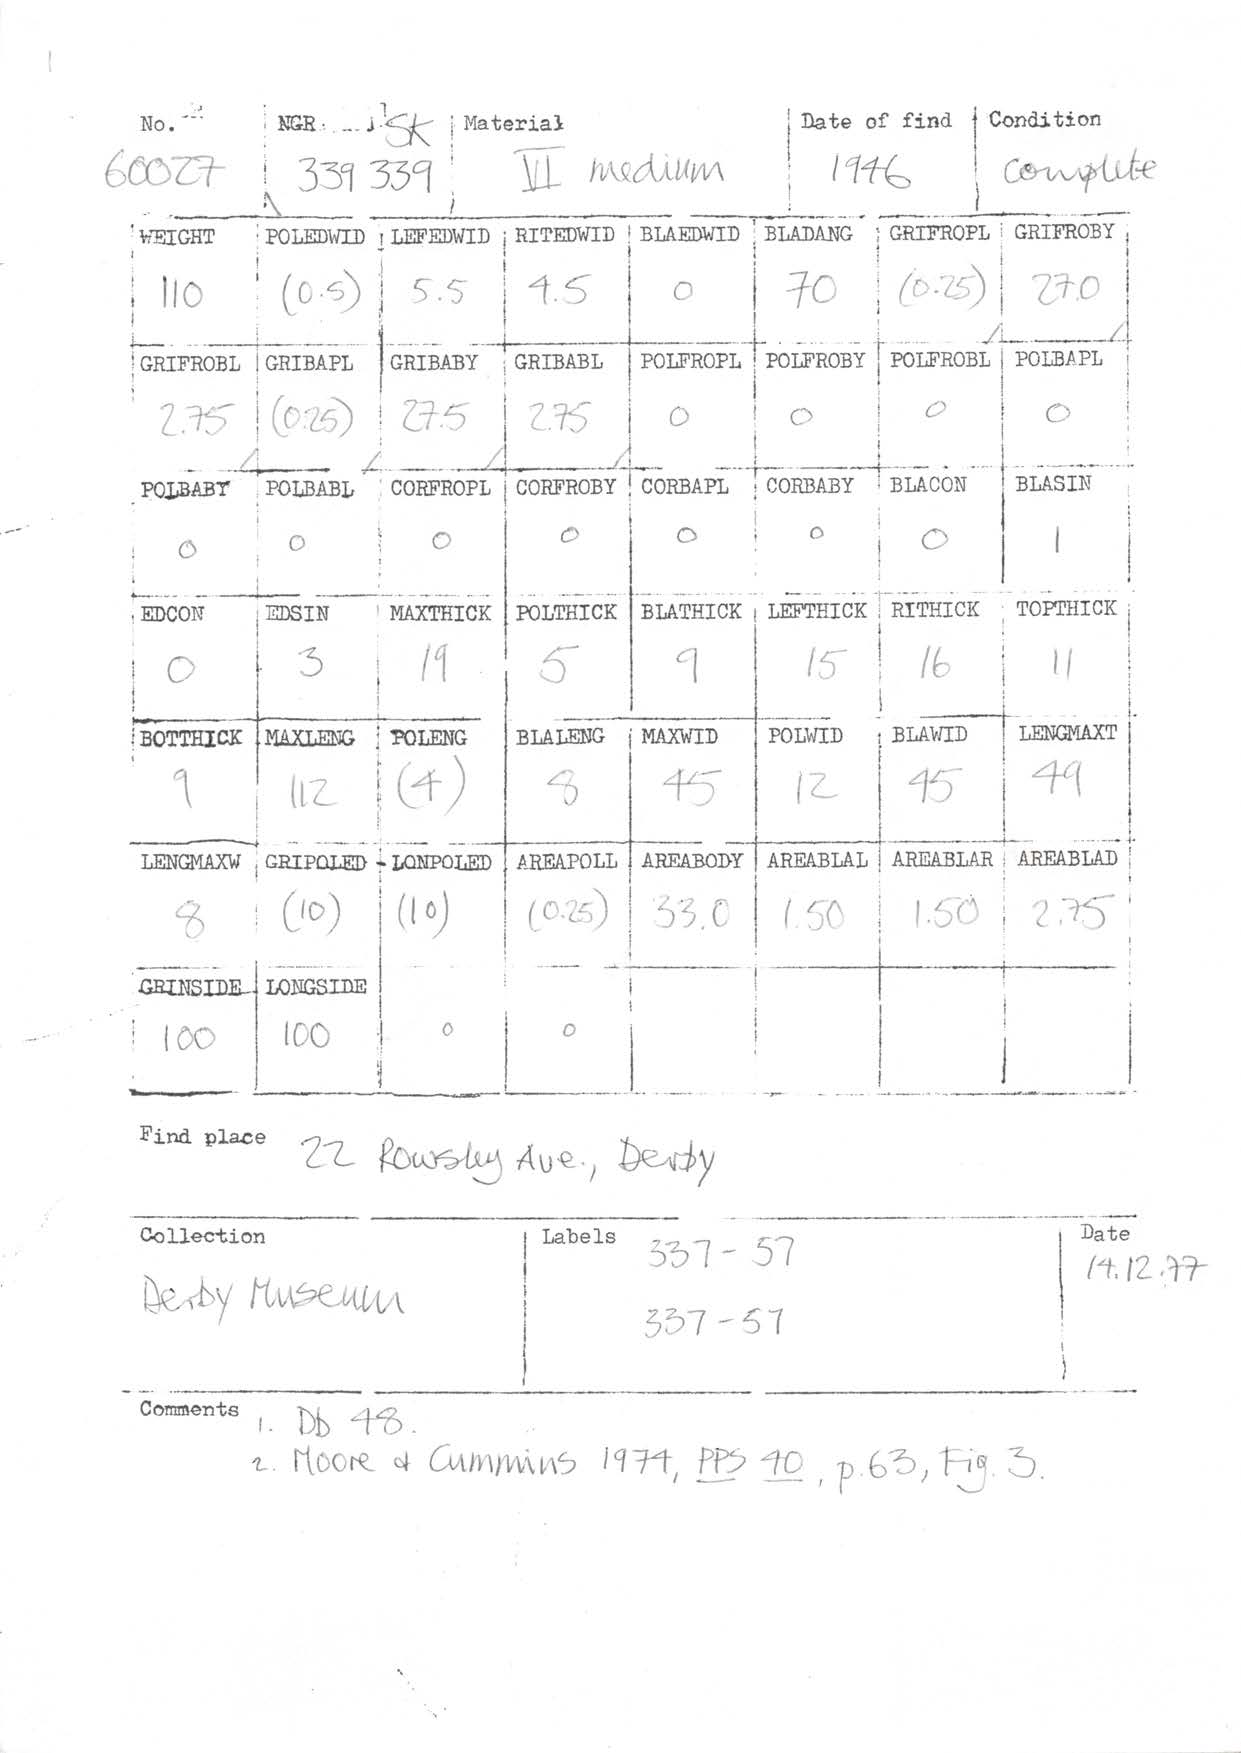 No. NGR SK Material Date of find Condition
60027 339 339 VI medium 1946 complete
WEIGHT POLEDWID LEFEDWID RITEDWID BLAEDWID BLADANG GRIFROPL GRIFROBY
110 (0.5) 5.5 4.5 0 70 (0.25) 27.0
GRIFROBL GRIBAPL GRIBABY GRIBABL POLFROPL POLFROBY POLFROBL POLBAPL
2.75 (0.25) 27.5 2.75 0 0 0 0
POLBABY POLBABL CORFROPL CORFROBY CORBAPL CORBABY BLACON BLASIN
0 0 0 0 0 0 0 1
EDCON EDSIN MAXTHICK POLTHICK BLATHICK LEFTHICK RITHICK TOPTHICK
0 3 19 5 9 15 16 11
BOTTHICK MAXLENG POLENG BLALENG MAXWID POLWID BLAWID LENGMAXT
9 112 (4) 8 45 12 45 49
LENGMAXW GRIPOLED LONPOLED AREAPOLL AREABODY AREABLAL AREABLAR AREABLAD
8 (10) (10) (0.25) 33.0 1.50 1.50 2.75
GRINSIDE LONGSIDE
100 100 0 0
Find place 22 Rowsley Ave., Derby
Collection Labels 337-57 Date
14.12.77
Derby Museum
337-57
Comments 1. Db 48.
2. Moore & Cummins 1974, PPS 40, p.63, Fig. 3.